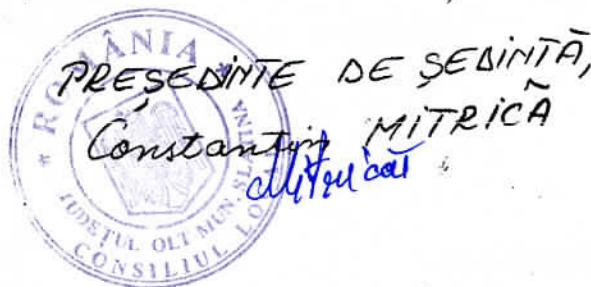 PREȘEDINTE DE ȘEDINȚĂ,
Constantin MITRICĂ
Mitrică
* ROMÂNIA *
JUDEȚUL OLT MUN. SLATINA
CONSILIUL LO